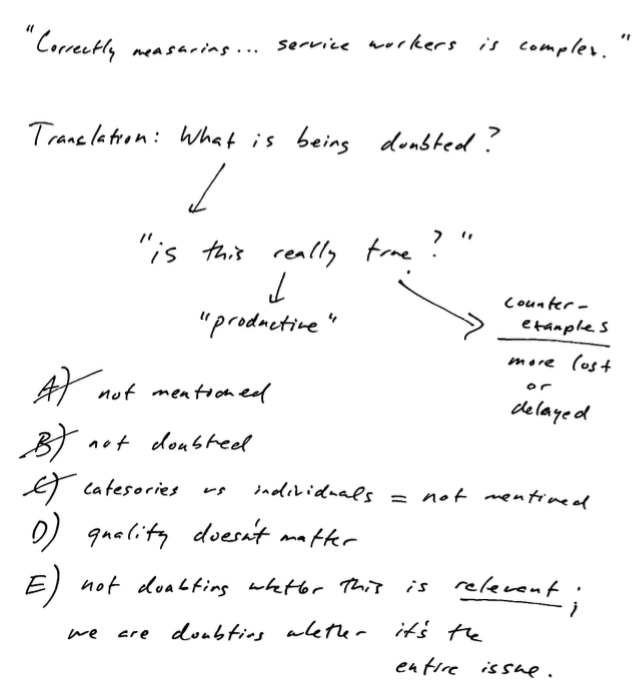 "Correctly measuring... service workers is complex."
Translation: What is being doubted?
"is this really true?"
"productive"
counter-
examples
more lost
or
delayed
A) not mentioned
B) not doubted
C) categories vs individuals = not mentioned
D) quality doesn't matter
E) not doubting whether this is relevant;
we are doubting whether it's the
entire issue.